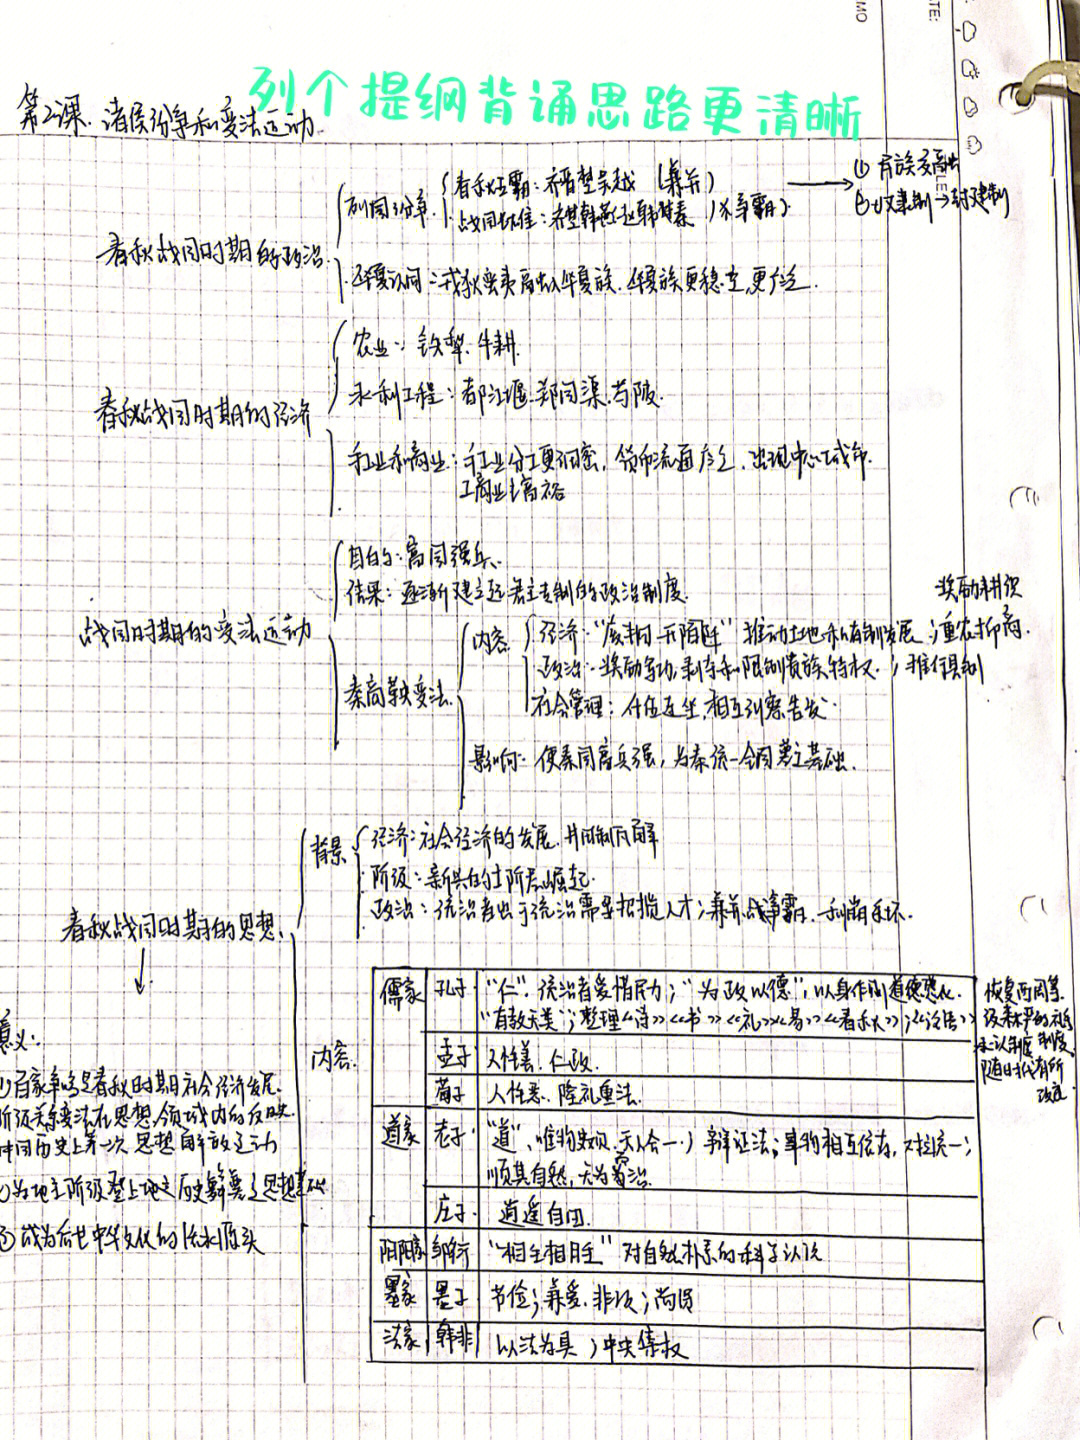 MO
ATE:
列个提纲背诵思路更清晰
第2课.诸侯纷争和变法运动
春秋战国时期的政治.
列国纷争
春秋五霸:齐晋楚吴越(兼并)
战国七雄:齐楚韩燕赵魏秦(争霸)
①
② →封建制
华夏认同:戎狄蛮夷融入华夏族.华夏族更稳定,更广泛.
春秋战国时期的经济
农业:铁犁.牛耕.
水利工程:都江堰.郑国渠.芍陂.
手工业和商业:手工业分工更细密,货币流通广泛.出现中心城市.
工商业主富裕
战国时期的变法运动
目的:富国强兵.
结果:逐渐建立起君主专制的政治制度.
奖励耕织
秦商鞅变法
内容
经济:"废井田 开阡陌" 推动土地私有制发展;重农抑商.
政治:奖励军功,剥夺和限制贵族特权.;推行县制
社会管理:什伍连坐,相互纠察告发.
影响:使秦国富兵强,为秦统一全国奠定基础.
春秋战国时期的思想.
背景
经济:社会经济的发展.井田制瓦解
阶级:新兴的士阶层崛起.
政治:统治者出于统治需要招揽人才;兼并战争霸.礼崩乐坏.
内容.
儒家 孔子 "仁".统治者爱惜民力;"为政以德";以身作则道德感化.
"有教无类";整理《诗》《书》《礼》《易》《春秋》;《论语》
孟子 人性善.仁政.
荀子 人性恶.隆礼重法.
道家 老子 "道",唯物 天人合一;辩证法;事物相互依存,对立统一;
顺其自然,无为而治.
庄子 逍遥自由.
阴阳家 邹衍 "相生相胜"对自然朴素的科学认识
墨家 墨子 节俭;兼爱.非攻;尚贤
法家 韩非 以法为具;中央集权
恢复西周等
级秩序的礼乐
制度
随时代有所
改造
意义:
①百家争鸣是春秋时期社会经济发展.
阶级关系变法在思想领域内的反映.
中国历史上第一次思想解放运动
②为地主阶级登上地主历史舞台奠定了思想基础
③成为后世中华文化的 源头